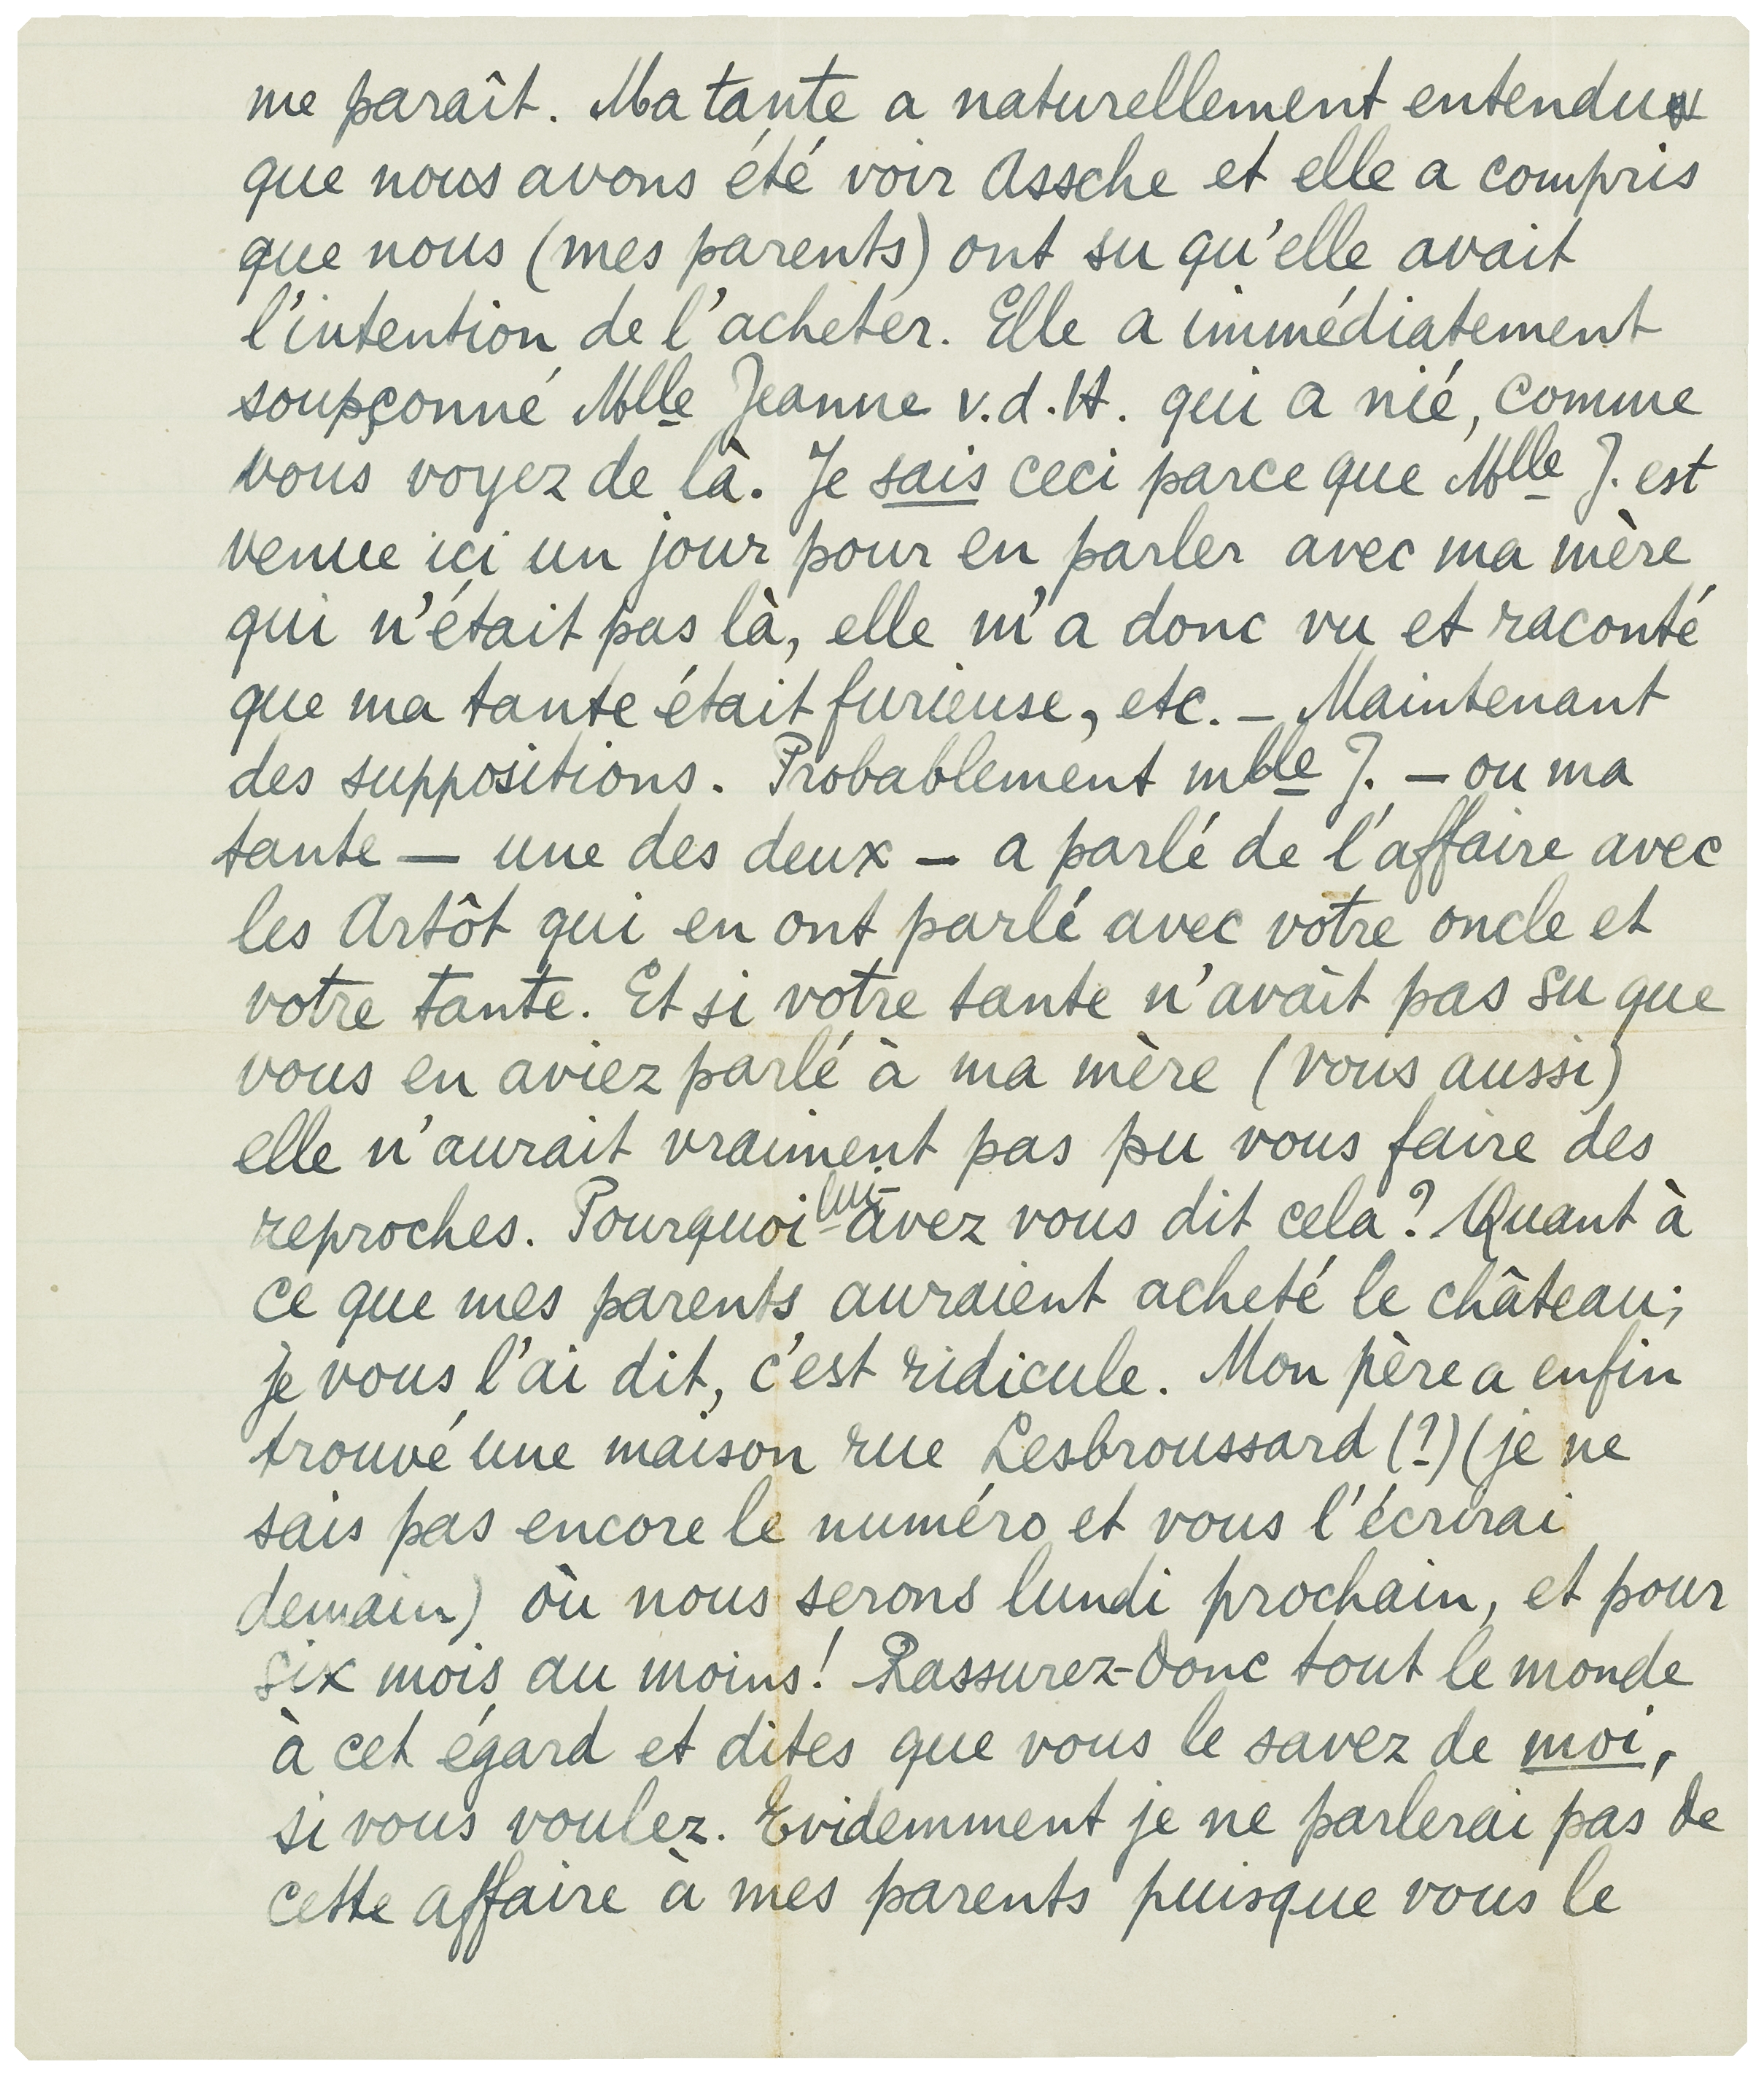 me paraît. Ma tante a naturellement entendu
que nous avons été voir Assche et elle a compris
que nous (mes parents) ont su qu'elle avait
l'intention de l'acheter. Elle a immédiatement
soupçonné Mlle Jeanne v.d.H. qui a nié, comme
vous voyez de là. Je sais ceci parce que Mlle J. est
venue ici un jour pour en parler avec ma mère
qui n'était pas là, elle m'a donc vu et raconté
que ma tante était furieuse, etc. — Maintenant
des suppositions. Probablement mlle J. — ou ma
tante — une des deux — a parlé de l'affaire avec
les Artôt qui en ont parlé avec votre oncle et
votre tante. Et si votre tante n'avait pas su que
vous en aviez parlé à ma mère (vous aussi)
elle n'aurait vraiment pas pu vous faire des
reproches. Pourquoi lui-avez vous dit cela? Quant à
ce que mes parents auraient acheté le château;
je vous l'ai dit, c'est ridicule. Mon père a enfin
trouvé une maison rue Lesbroussard (?) (je ne
sais pas encore le numéro et vous l'écrirai
demain) où nous serons lundi prochain, et pour
six mois au moins! Rassurez-donc tout le monde
à cet égard et dites que vous le savez de moi,
si vous voulez. Evidemment je ne parlerai pas de
cette affaire à mes parents puisque vous le